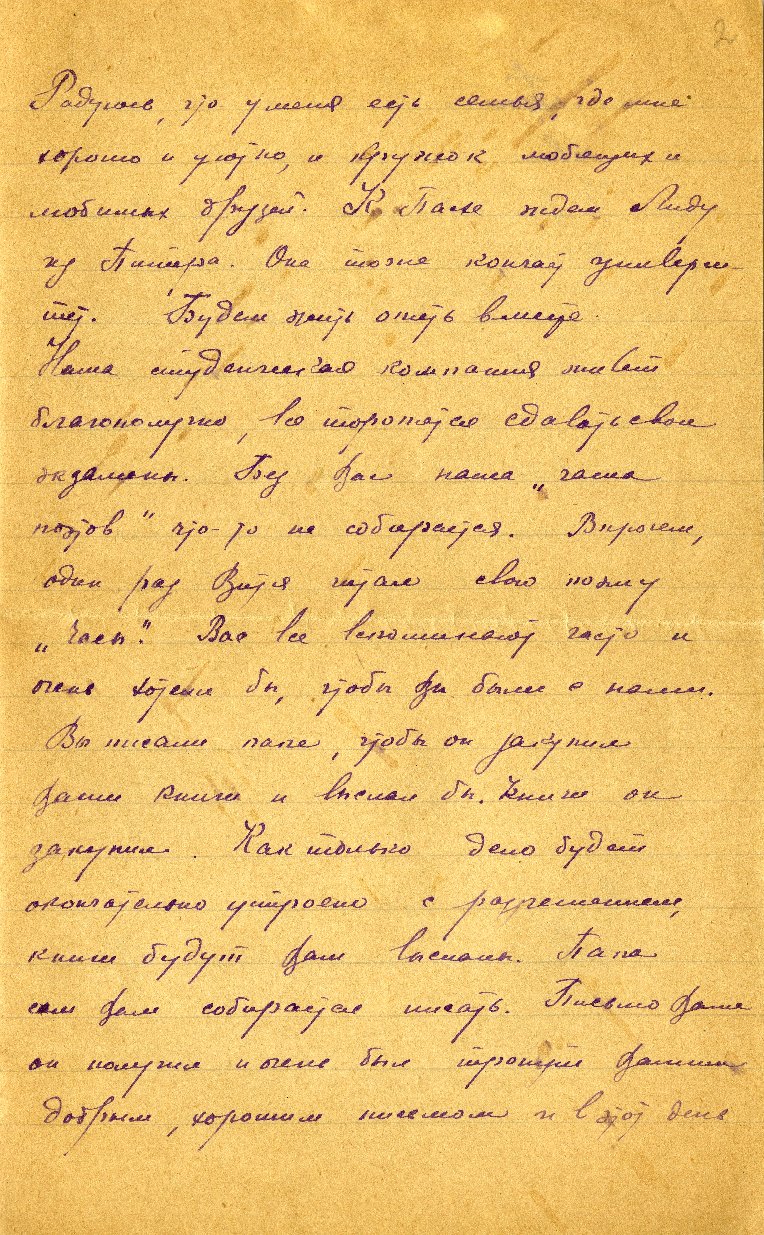 2
Радуюсь, что у меня есть семья, где мне
хорошо и уютно, и кружок любящих и
любимых друзей. К Пасхе ждем Лиду
из Питера. Она тоже кончает универси-
тет. Будем жить опять вместе.
Наша студенческая компания живет
благополучно, все торопятся сдавать свои
экзамены. Без Вас наша „чаша
поэтов" что-то не собирается. Впрочем,
один раз Витя читал свою поэму
„Часы". Вас все вспоминают часто и
очень хотели бы, чтобы Вы были с нами.
Вы писали папе, чтобы он закупил
Ваши книги и выслал бы. Книги он
закупил. Как только дело будет
окончательно устроено с разрешением,
книги будут Вам высланы. Папа
сам Вам собирается писать. Письмо Ваше
он получил и очень был тронут Вашим
добрым, хорошим письмом и в этот день